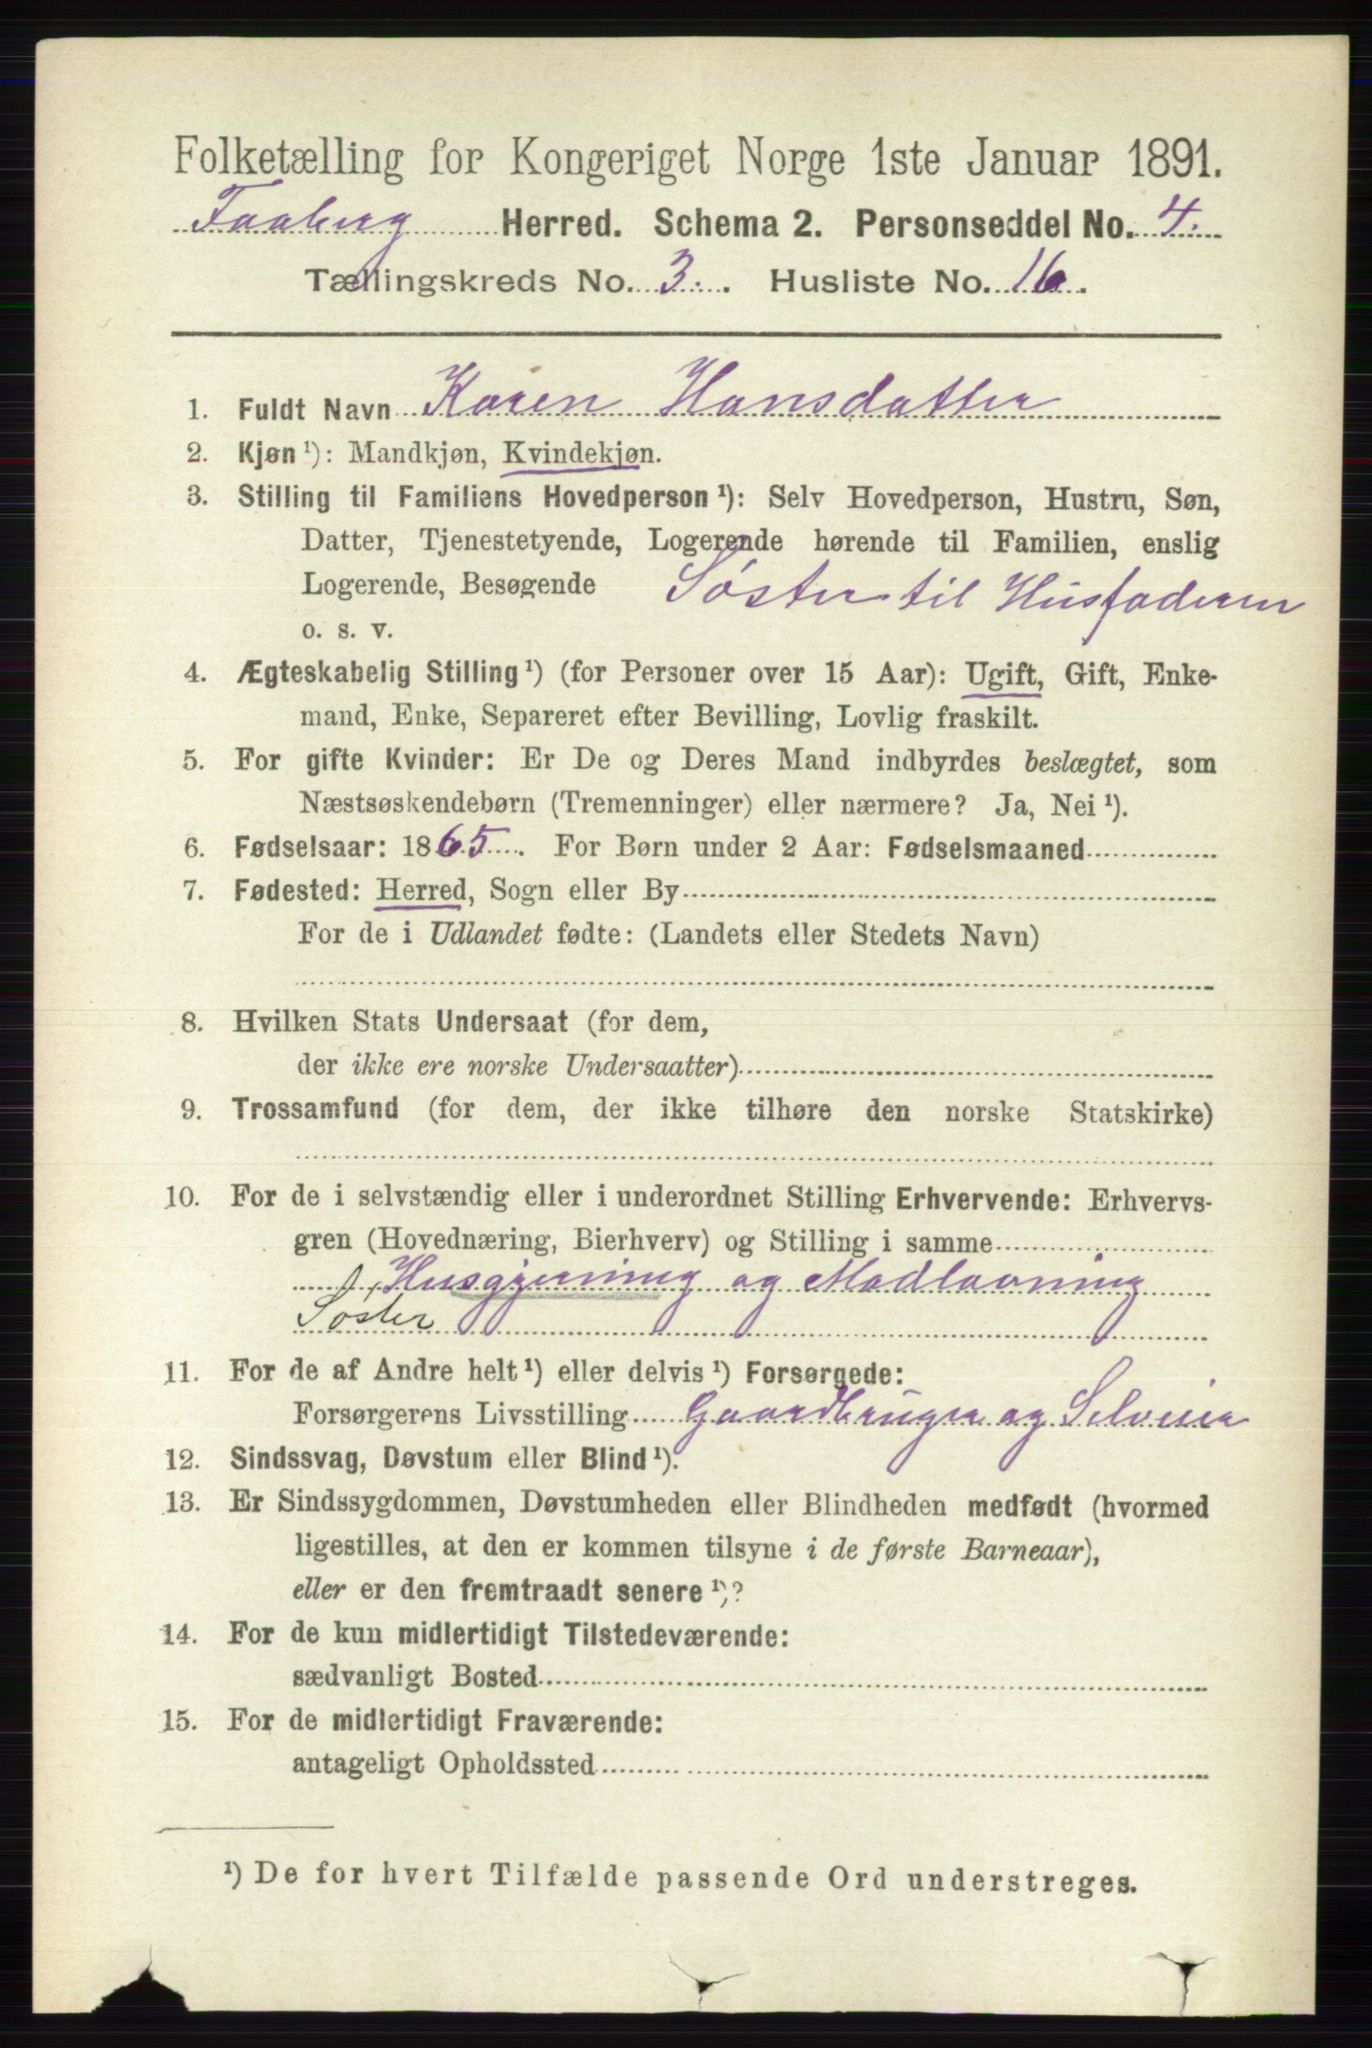 Folketælling for Kongeriget Norge 1ste Januar 1891.
Faaberg Herred. Schema 2. Personseddel No. 4.
Tællingskreds No. 3. Husliste No. 16.
1. Fuldt Navn Karen Hansdatter
2. Kjøn ¹): Mandkjøn, Kvindekjøn.
3. Stilling til Familiens Hovedperson ¹): Selv Hovedperson, Hustru, Søn,
Datter, Tjenestetyende, Logerende hørende til Familien, enslig
Logerende, Besøgende Søster til Husfaderen
o. s. v.
4. Ægteskabelig Stilling ¹) (for Personer over 15 Aar): Ugift, Gift, Enke-
mand, Enke, Separeret efter Bevilling, Lovlig fraskilt.
5. For gifte Kvinder: Er De og Deres Mand indbyrdes beslægtet, som
Næstsøskendebørn (Tremenninger) eller nærmere? Ja, Nei ¹).
6. Fødselsaar: 1865. For Børn under 2 Aar: Fødselsmaaned
7. Fødested: Herred, Sogn eller By
For de i Udlandet fødte: (Landets eller Stedets Navn)
8. Hvilken Stats Undersaat (for dem,
der ikke ere norske Undersaatter)
9. Trossamfund (for dem, der ikke tilhøre den norske Statskirke)
10. For de i selvstændig eller i underordnet Stilling Erhvervende: Erhvervs-
gren (Hovednæring, Bierhverv) og Stilling i samme
Husgjerning og Madlavning
Søster
11. For de af Andre helt ¹) eller delvis ¹) Forsørgede:
Forsørgerens Livsstilling Gaardbruger og Selveier
12. Sindssvag, Døvstum eller Blind ¹).
13. Er Sindssygdommen, Døvstumheden eller Blindheden medfødt (hvormed
ligestilles, at den er kommen tilsyne i de første Barneaar),
eller er den fremtraadt senere ¹)?
14. For de kun midlertidigt Tilstedeværende:
sædvanligt Bosted
15. For de midlertidigt Fraværende:
antageligt Opholdssted
¹) De for hvert Tilfælde passende Ord understreges.